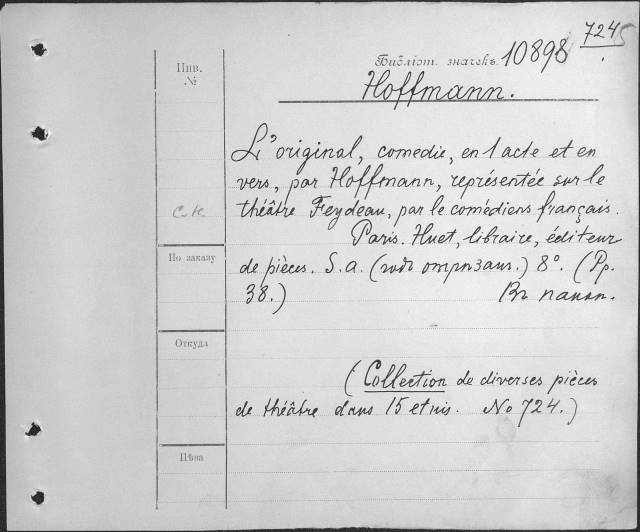 7245
Библіот. значекъ 10898
Инв.
№
Hoffmann.
L'original, comedie, en 1 acte et en
vers, par Hoffmann, représentée sur le
théâtre Feydeau, par le comédiens français.
Paris. Huet, libraire, éditeur
По заказу
de pièces. S.a. (годъ отрѣзанъ.) 8°. (Pp.
38.)
Въ папкѣ.
Откуда
(Collection de diverses pièces
de théâtre dans 15 etuis. No 724.)
Цѣна